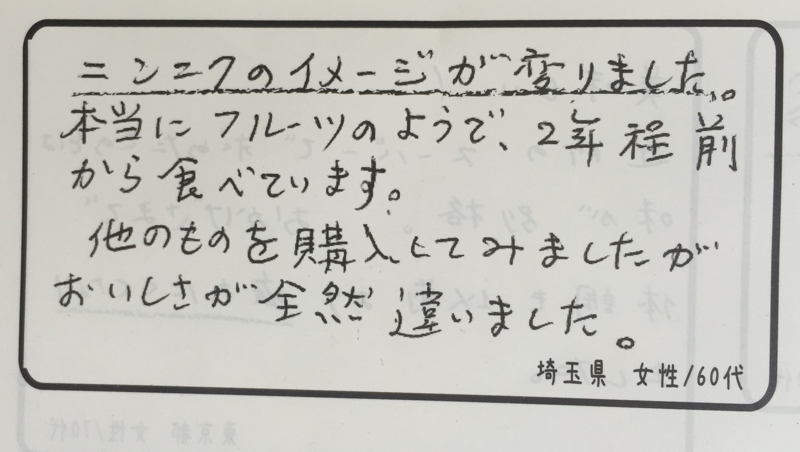 ニンニクのイメージが変りました。
本当にフルーツのようで、2年程前
から食べています。
他のものを購入してみましたが
おいしさが全然違いました。
埼玉県 女性/60代